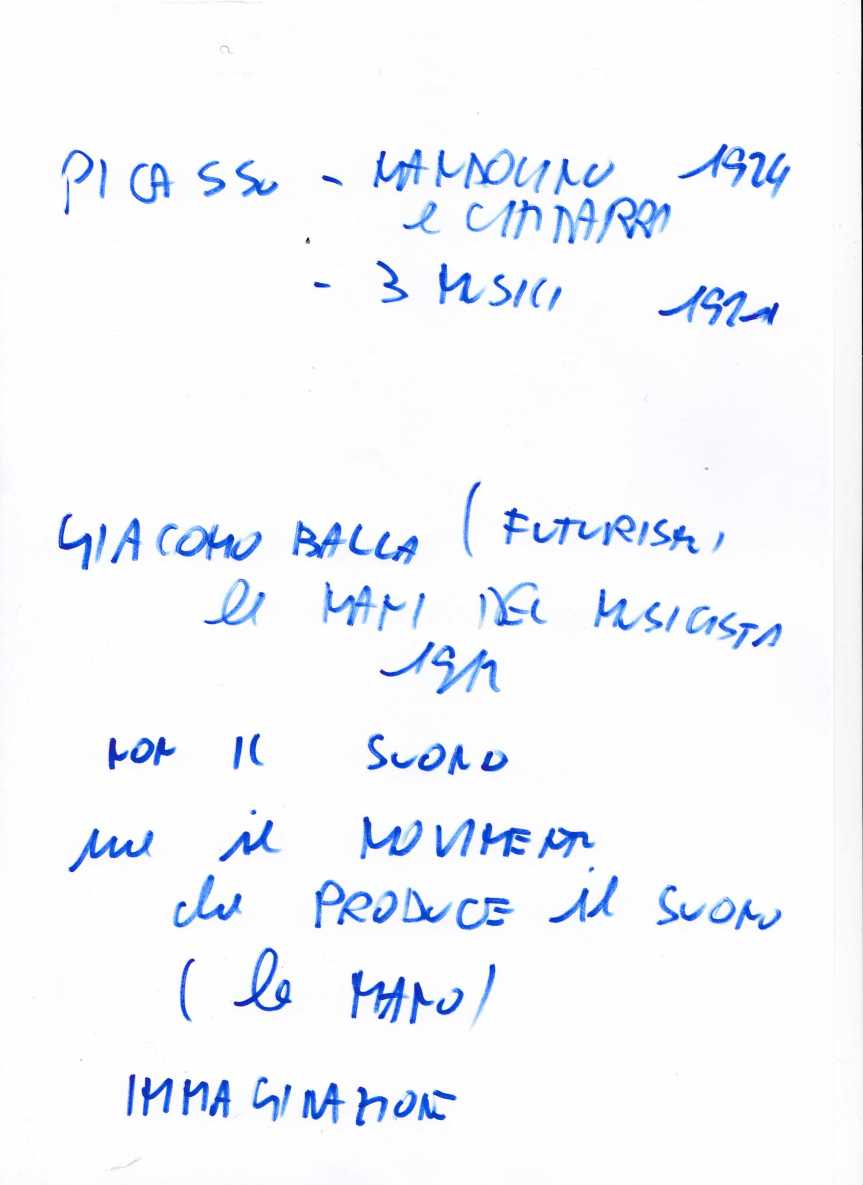 PICASSO - MANDOLINO 1924
e CHITARRA
- 3 MUSICI 1921
GIACOMO BALLA (FUTURISMO)
le MANI DEL MUSICISTA
1912
NON IL SUONO
ma il MOVIMENTO
che PRODUCE il SUONO
(la MANO)
IMMAGINAZIONE